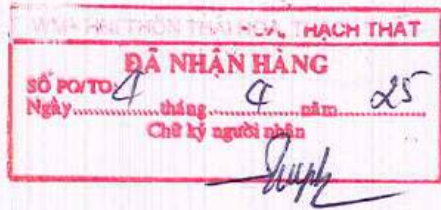 WM+ HNI THÔN THÁI HÒA, THẠCH THẤT
ĐÃ NHẬN HÀNG
SỐ PO/TO:
Ngày 4 tháng 4 năm 25
Chữ ký người nhận